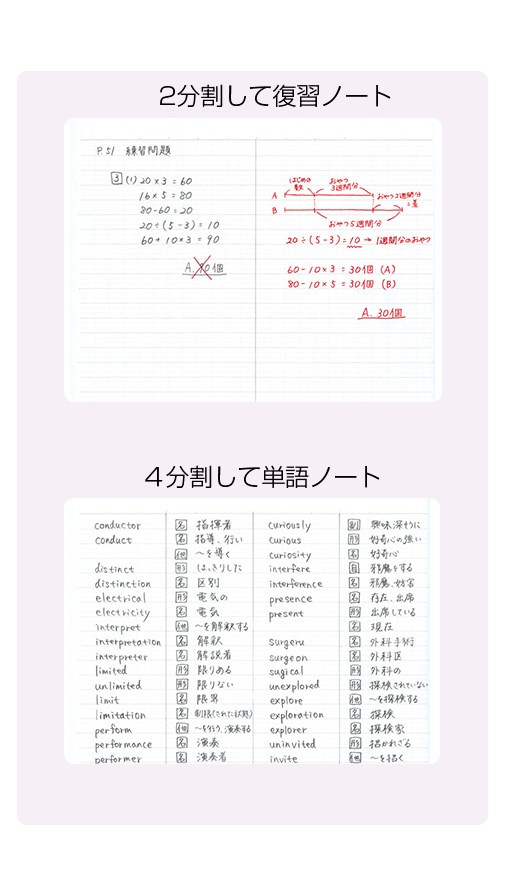 2分割して復習ノート
P.51 練習問題
3 (1) 20×3=60
16×5=80
80-60=20
20÷(5-3)=10
60+10×3=90
A. 90個
はじめの数
おやつ3週間分
A
おやつ2週間分=差
B
おやつ5週間分
20÷(5-3)=10→1週間分のおやつ
60-10×3=30個 (A)
80-10×5=30個 (B)
A. 30個
4分割して単語ノート
conductor 名 指揮者
conduct 名 指導、行い
他 〜を導く
distinct 形 はっきりした
distinction 名 区別
electrical 形 電気の
electricity 名 電気
interpret 他 〜を解釈する
interpretation 名 解釈
interpreter 名 解説者
limited 形 限りある
unlimited 形 限りない
limit 名 限界
limitation 名 制限(された状態)
perform 他 〜を行う、演奏する
performance 名 演奏
performer 名 演奏者
curiously 副 興味深そうに
curious 形 好奇心の強い
curiosity 名 好奇心
interfere 自 邪魔をする
interference 名 邪魔、妨害
presence 名 存在、出席
present 形 出席している
名 現在
surgeru 名 外科手術
surgeon 名 外科医
sugical 形 外科の
unexplored 形 探検されていない
explore 他 〜を探検する
exploration 名 探検
explorer 名 探検家
uninvited 形 招かれざる
invite 他 〜を招く